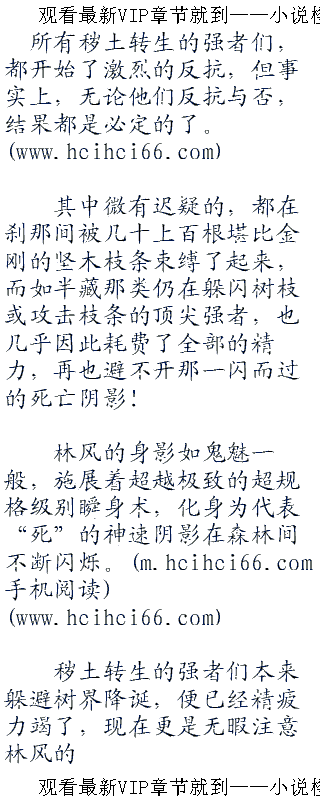 观看最新VIP章节就到——小说检
所有秽土转生的强者们，
都开始了激烈的反抗，但事
实上，无论他们反抗与否，
结果都是必定的了。
(www.hcihci66.com)
其中微有迟疑的，都在
刹那间被几十上百根堪比金
刚的坚木枝条束缚了起来，
而如半藏那类仍在躲闪树枝
或攻击枝条的顶尖强者，也
几乎因此耗费了全部的精
力，再也避不开那一闪而过
的死亡阴影！
林风的身影如鬼魅一
般，施展着超越极致的超规
格级别瞬身术，化身为代表
“死”的神速阴影在森林间
不断闪烁。(m.hcihci66.com
手机阅读)
(www.hcihci66.com)
秽土转生的强者们本来
躲避树界降诞，便已经精疲
力竭了，现在更是无暇注意
林风的
观看最新VIP章节就到——小说检